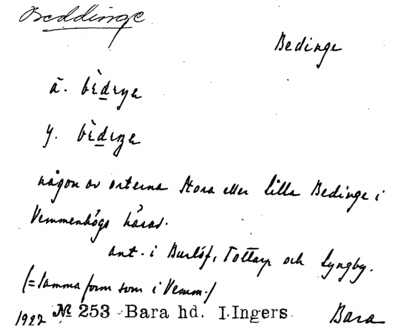 Beddinge
Bedinge
ä. bèdꞮŋa
y. bèdꞮŋa
någon av orterna Stora eller Lilla Bedinge i
Vemmenhögs härad.
ant. i Burlöf, Tottarp och Lyngby.
(= samma form som i Vemm.)
1927 № 253 Bara hd. I.Ingers. Bara